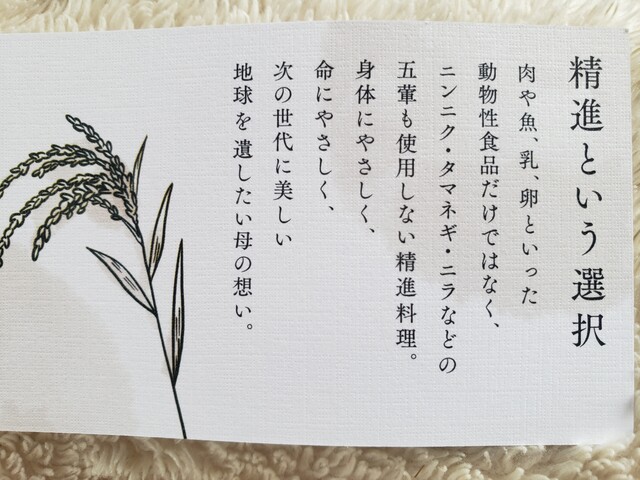 精進という選択
肉や魚、乳、卵といった
動物性食品だけではなく、
ニンニク・タマネギ・ニラなどの
五葷も使用しない精進料理。
身体にやさしく、
命にやさしく、
次の世代に美しい
地球を遺したい母の想い。